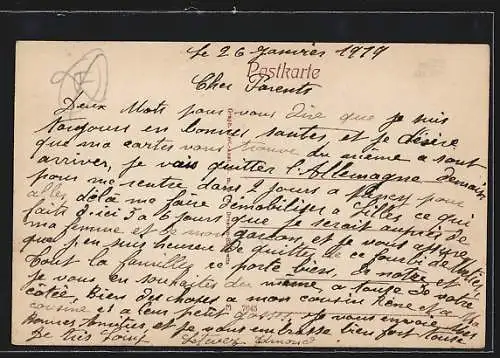 Le 26 Janvier 1919
Postkarte
Cher Parents
Deux Mots pour vous dire que je suis
toujours en bonnes santes et je désire
que ma cartes vous trouve du mieme a tout
arriver, je vais quitter l'Allemagne demain
pour me rentre dans 2 jours a Nancy pour
aller delà me faire demobiliser a Lille ce qui
fait d'ici 5 a 6 jours que je serait auprès de
ma femme et de mon garcon et je vous assure
que je suis heureux de quitter ce fourbi de
Tout la familles ce porte bien, du notre et
je vous en souhaites du mieme a toute de votre
côtée, Bien des choses a mon cousin René et a Ma
cousine et a leur petit garcon, Je vous envoie mes
bonnes Amities, et je vous embrasse bien fort Toute
De très Loin
7045